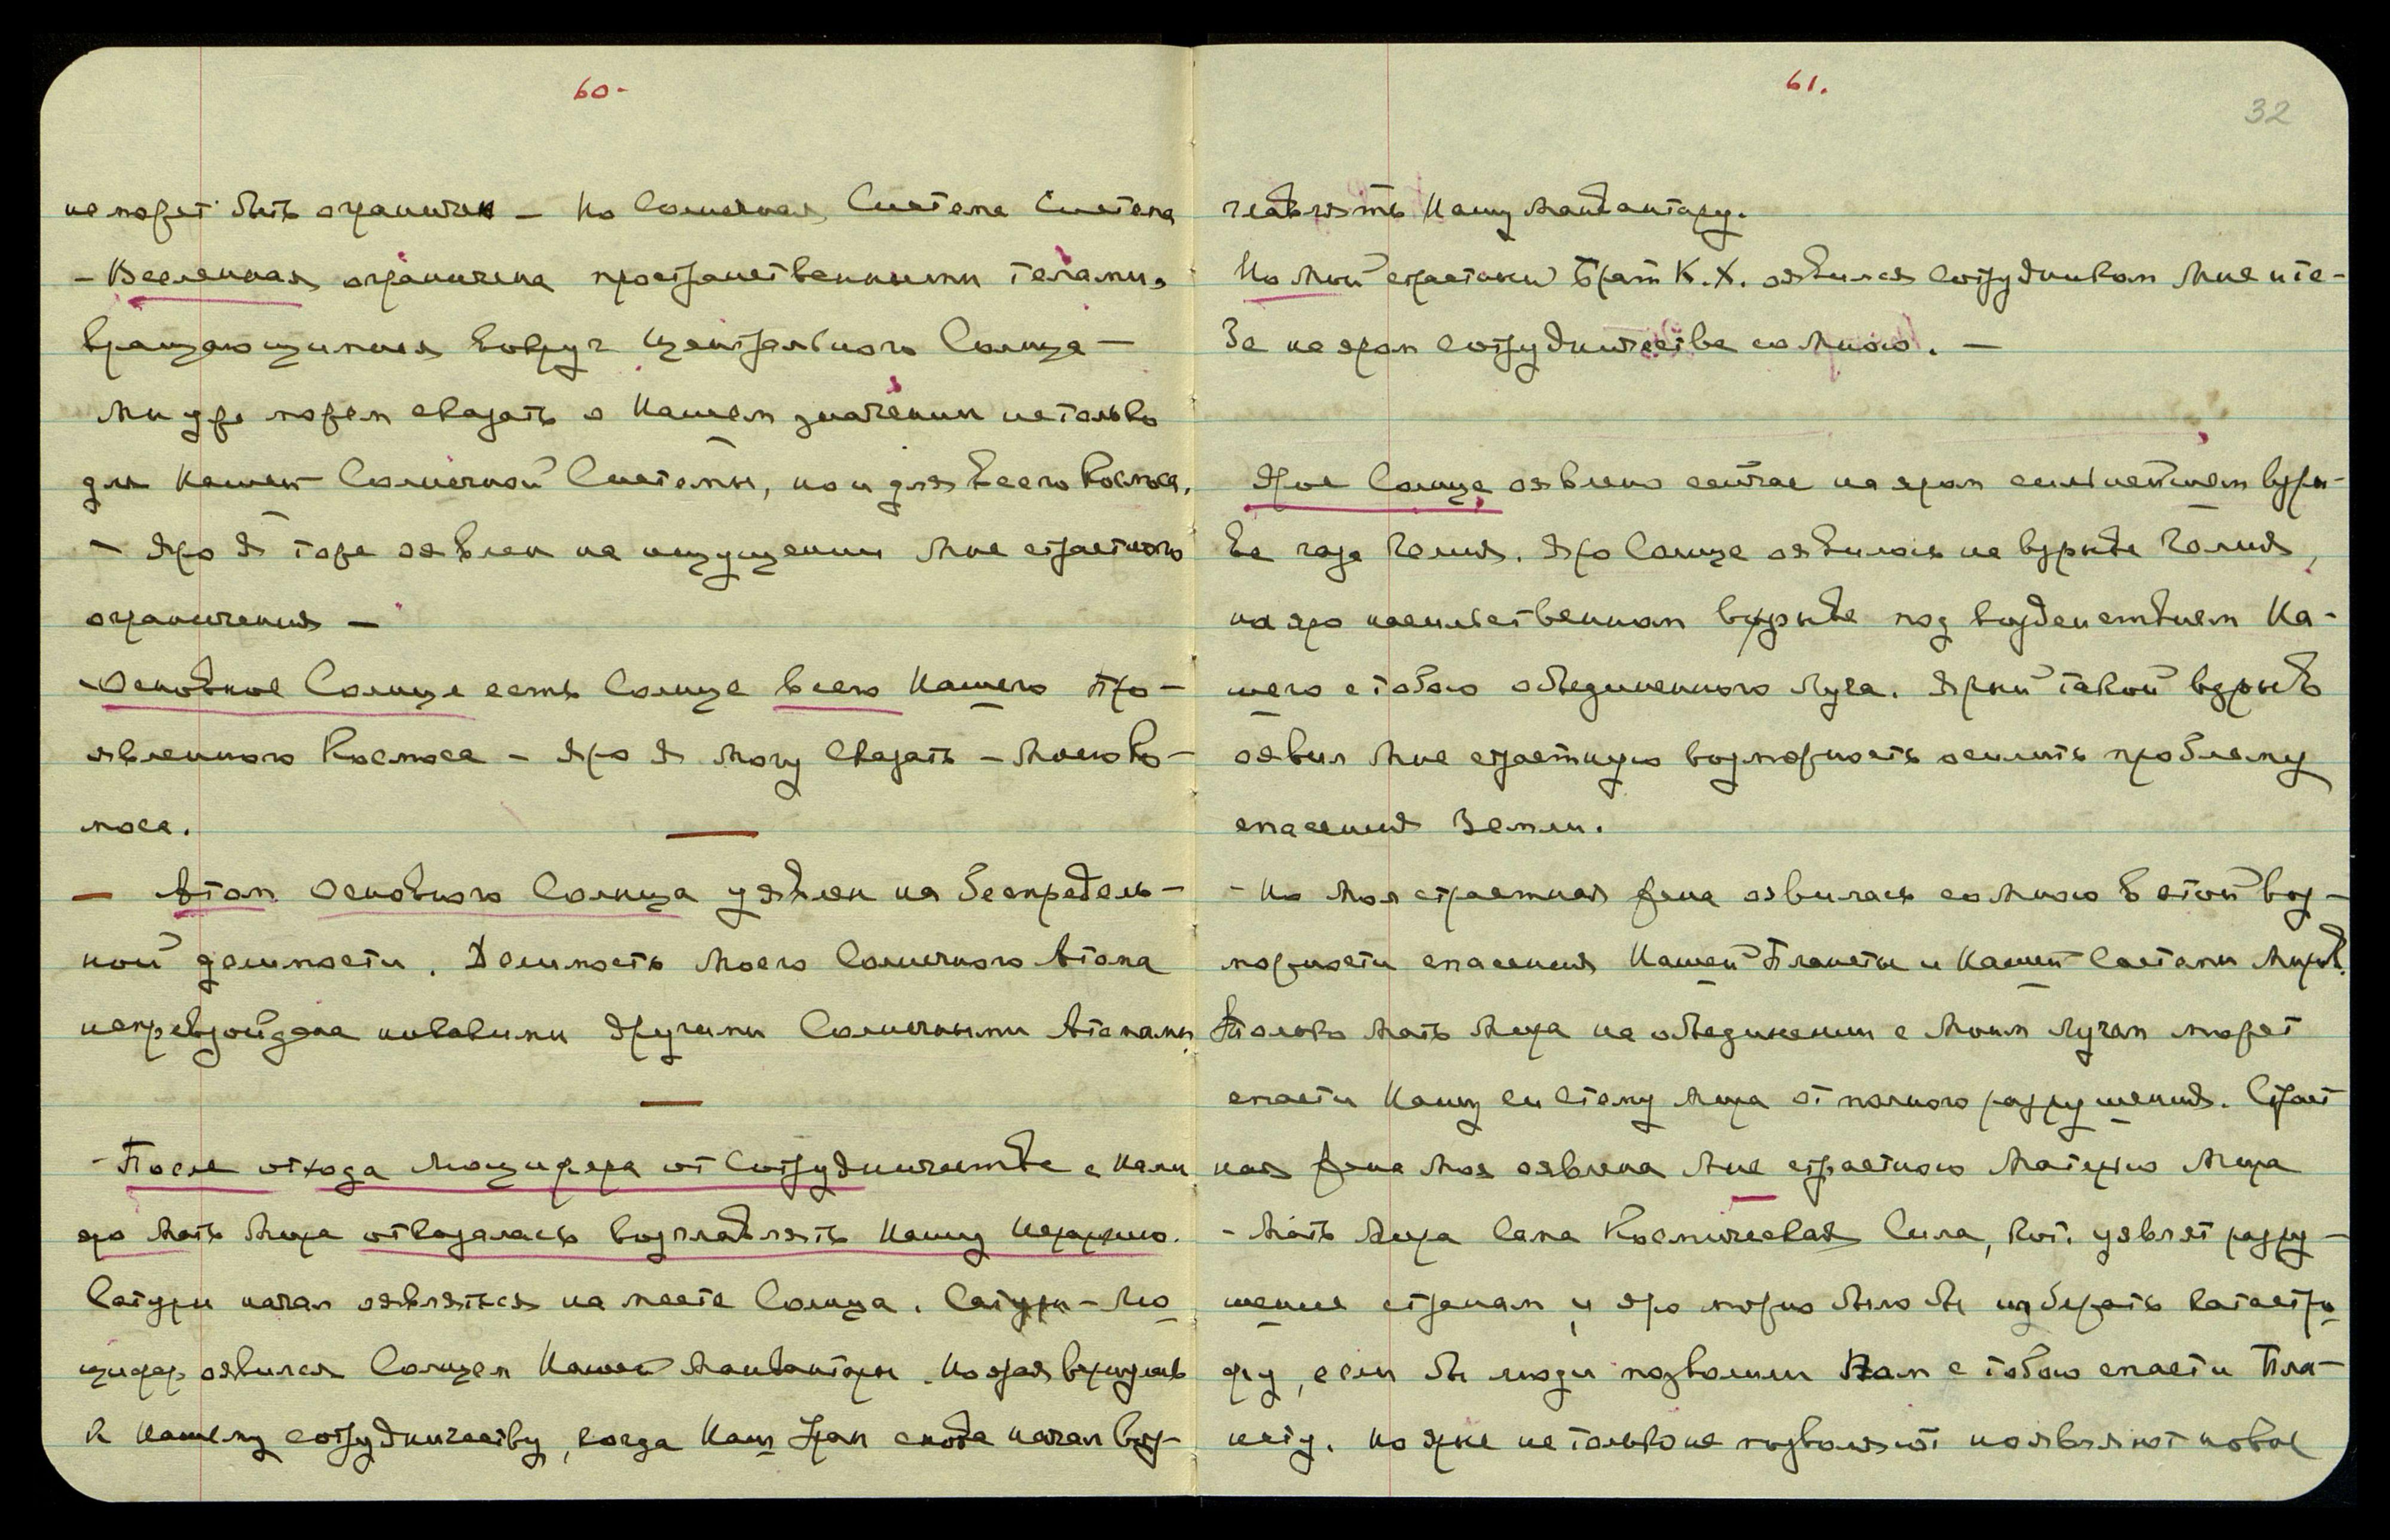 60-
не может быть ограничен – Но Солнечная Система Система
– Вселенная ограничена пространственными телами,
вращающимися вокруг Центрального Солнца –
Мы уже можем сказать о Нашем значении не только
для Нашей Солнечной Системы, но и для всего Космоса.
– Яро Я тоже оявлен на ощущении Мне страстного
ограничения –
– Основное Солнце есть Солнце всего Нашего Про-
явленного Космоса – Яро Я Могу сказать – Моего Ко-
моса.
– Атом Основного Солнца уявлен на беспредель-
ной дельности. Дельность Моего Солнечного Атома
непревзойдена никакими другими Солнечными Атомами.
– После отхода Люцифера от Сотрудничества с Нами
яро Мать Мира отказалась возглавлять Нашу Иерархию.
Сатурн начал оявляться на месте Солнца. Сатурн – Лю
цифер оявился Солнцем Нашей Манвантары. Но ярая вернулась
к Нашему сотрудничеству, когда Наш Уран снова начал воз-
61.
32
главлять Нашу Манвантару.
Но Мой страстный Брат К.Х. оявился сотрудником Мне и те-
бе на яром сотрудничестве со Мною. –
Ярое Солнце оявлено сейчас на яром сильнейшем взры-
ве газа Гелия. Яро Солнце оявилось на взрыве Гелия,
на яро насильственном взрыве под воздействием На-
шего с тобою объединенного Луча. Ярый такой взрыв
оявил Мне страстную возможность осилить проблему
спасения Земли.
– Но Моя страстная Жена оявилась со Мною в этой воз-
можности спасения Нашей Планеты и Нашей Системы Миров.
Только Мать Мира на объединении с Моим Лучом может
спасти Нашу систему Мира от полного разрушения. Страст
ная Жена Моя оявлена Мне страстною Матерью Мира
– Мать Мира сама Космическая Сила, кот. уявляет разру-
шение странам и яро можно было бы избежать катастро
фу, если бы люди позволили Нам с тобою спасти Пла-
нету. Но ярые не только не позволяют но являют новое